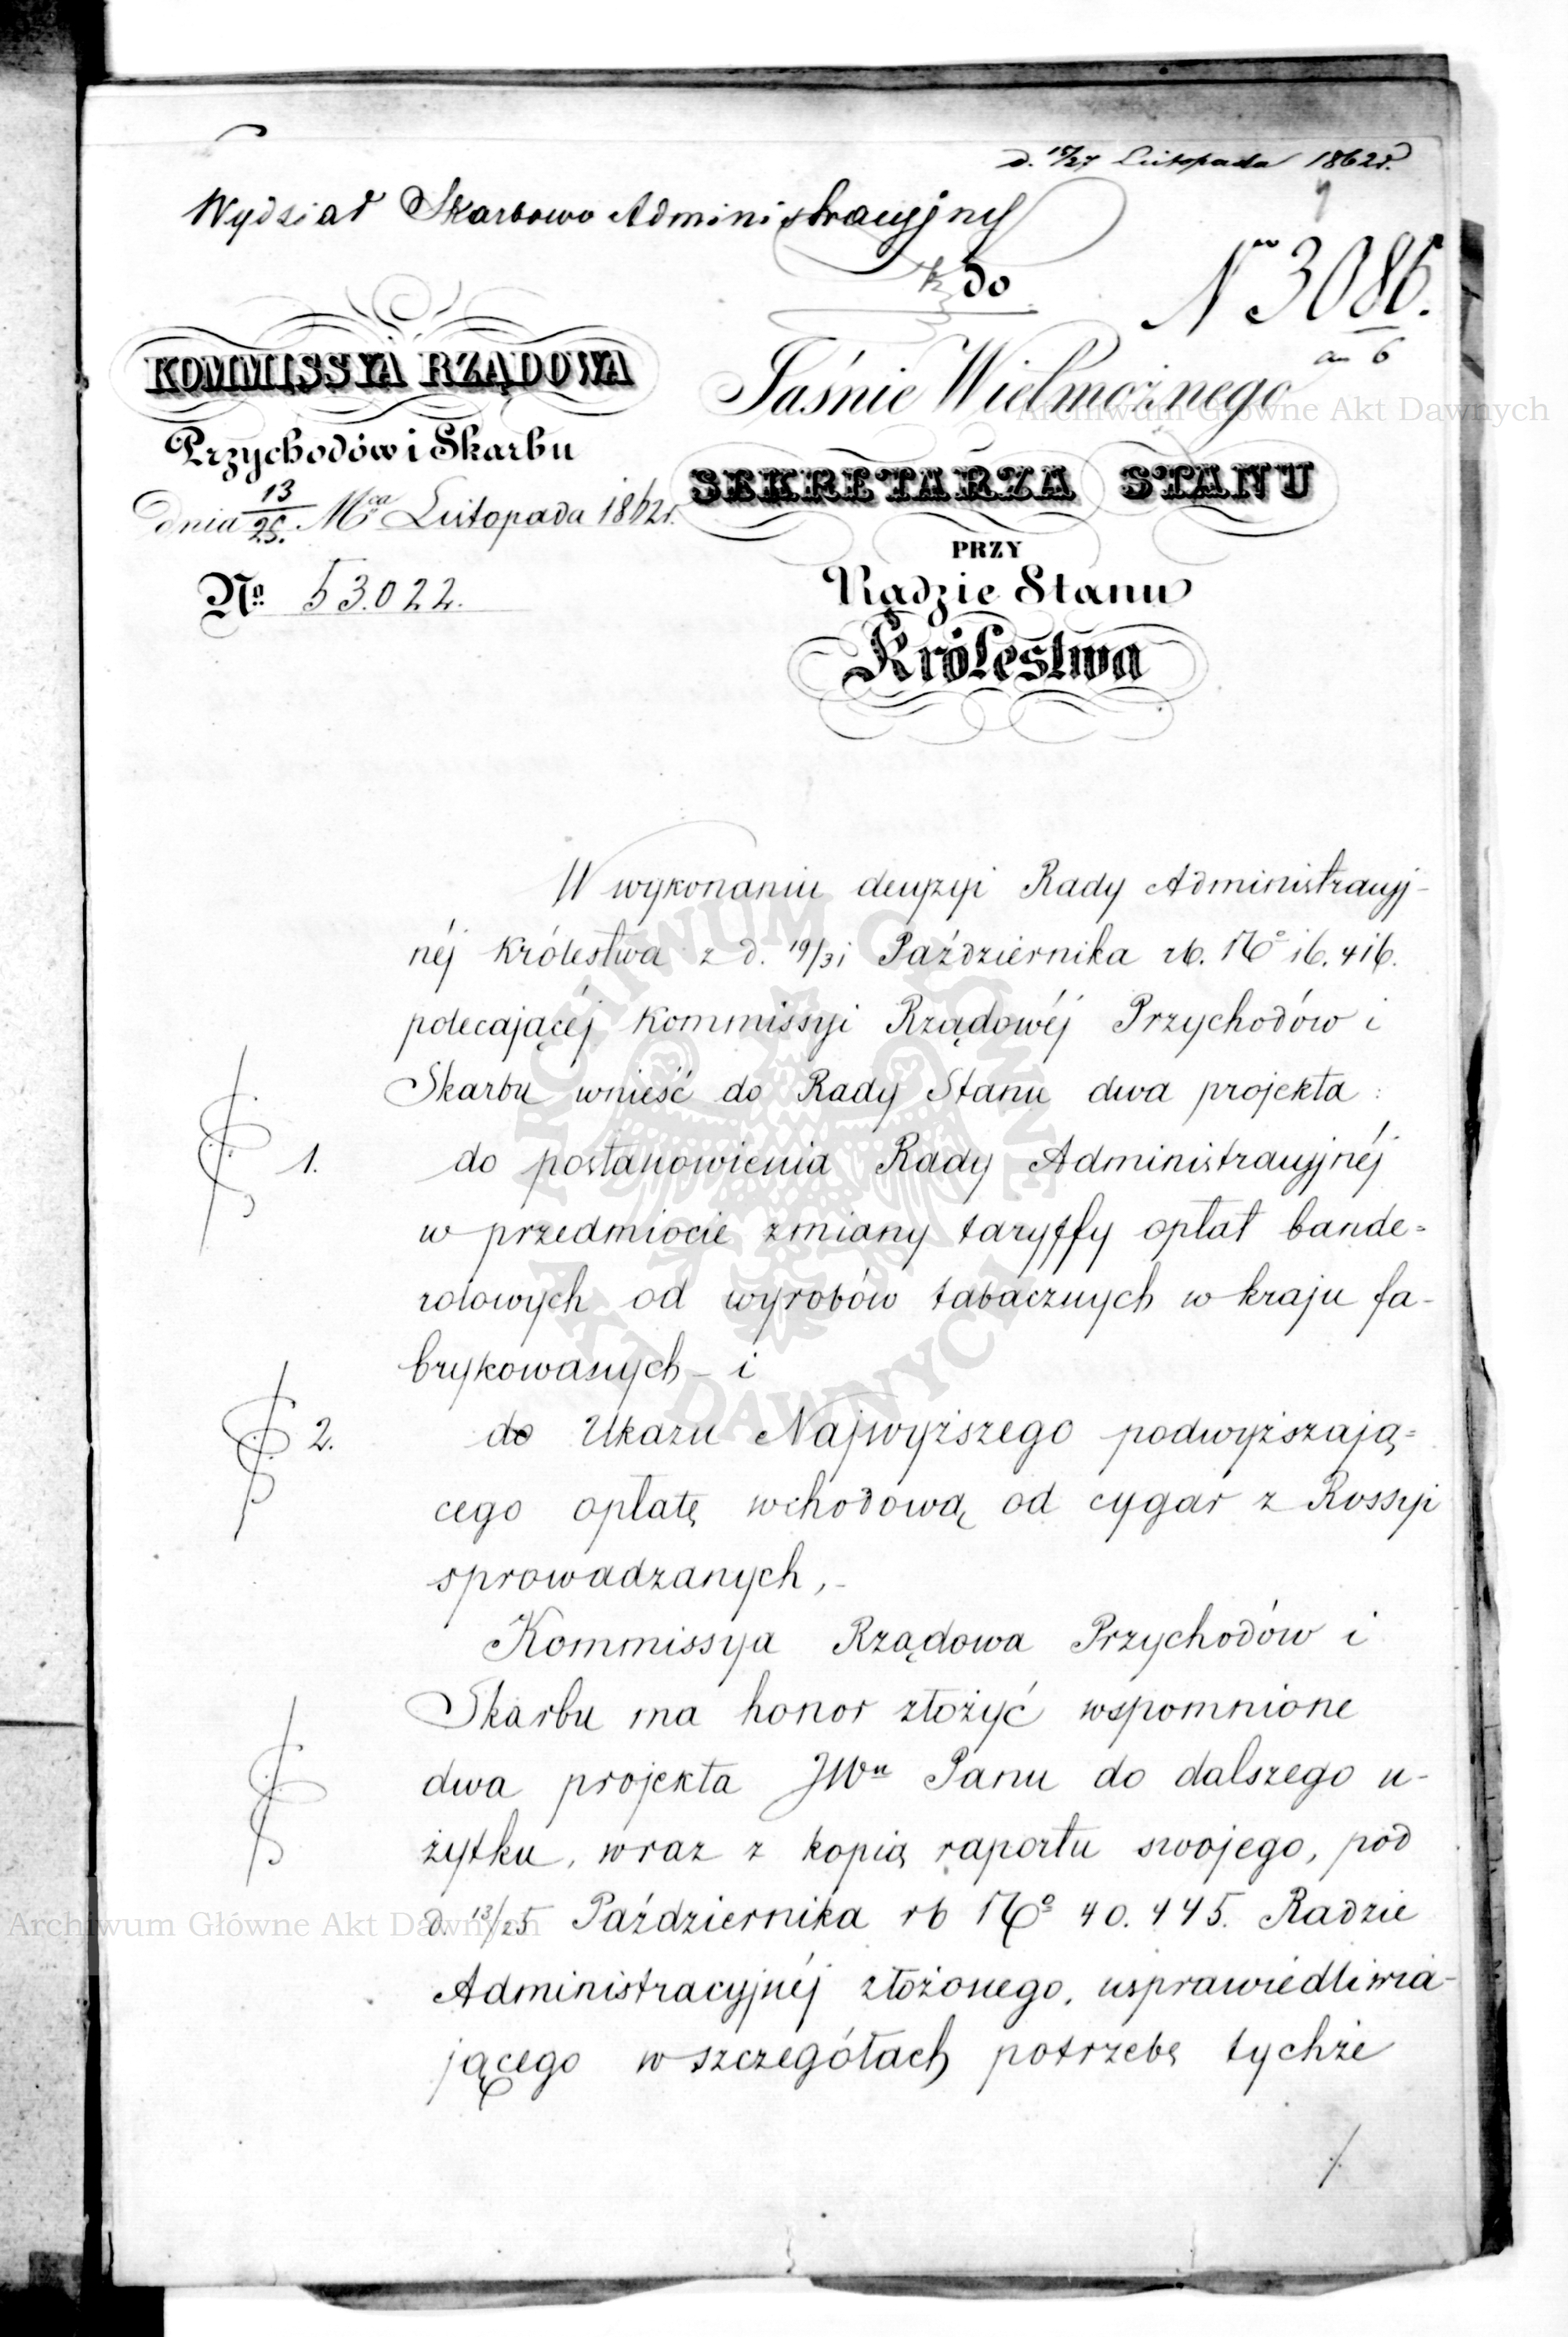 d. 15/27 Listopada 1862r.
Wydział Skarbowo Administracyjny
do
No 3086.
an 6
KOMMISSYA RZĄDOWA
Przychodów i Skarbu
dnia 13/25. Mca Listopada 1862r.
No 53.022.
Jaśnie Wielmożnego
SEKRETARZA STANU
PRZY
Radzie Stanu
Królestwa
W wykonaniu decyzyi Rady Administracyj-
néj Królestwa z d. 19/31 Października rb. No 16.416.
polecającéj Kommissyi Rządowéj Przychodów i
Skarbu wnieść do Rady Stanu dwa projekta:
1. do postanowienia Rady Administracyjnéj
w przedmiocie zmiany taryffy opłat bande=
rolowych od wyrobów tabacznych w kraju fa-
brykowanych - i
2. do Ukazu Najwyższego podwyższają=
cego opłatę wchodową od cygar z Rossyi
sprowadzanych, -
Kommissya Rządowa Przychodów i
Skarbu ma honor złożyć wspomnione
dwa projekta JWu Panu do dalszego u-
żytku, wraz z kopią raportu swojego, pod
d. 13/25 Października rb No 40.445. Radzie
Administracyjnéj złożonego, usprawiedliwia-
jącego w szczegółach potrzebę tychże
Archiwum Główne Akt Dawnych
Archiwum Główne Akt Dawnych
ARCHIWUM GŁÓWNE
AKT DAWNYCH